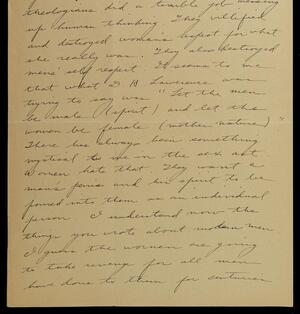 theologians did a terrible job messing
up human thinking. They villified
and destroyed woman's respect for what
she really was. They also destroyed
mens' self respect. It seems to me
that what D H Lawrence was
trying to say was "Let the men
be male (spirit) and let the
women be female (mother nature)"
There has always been something
mystical to me in the sex act
women hate that. They want a
man's penis and his spirit to be
poured into them as an individual
person. I understand now the
things you wrote about modern men
I guess the women are going
to take revenge for all men
have done to them for centuries